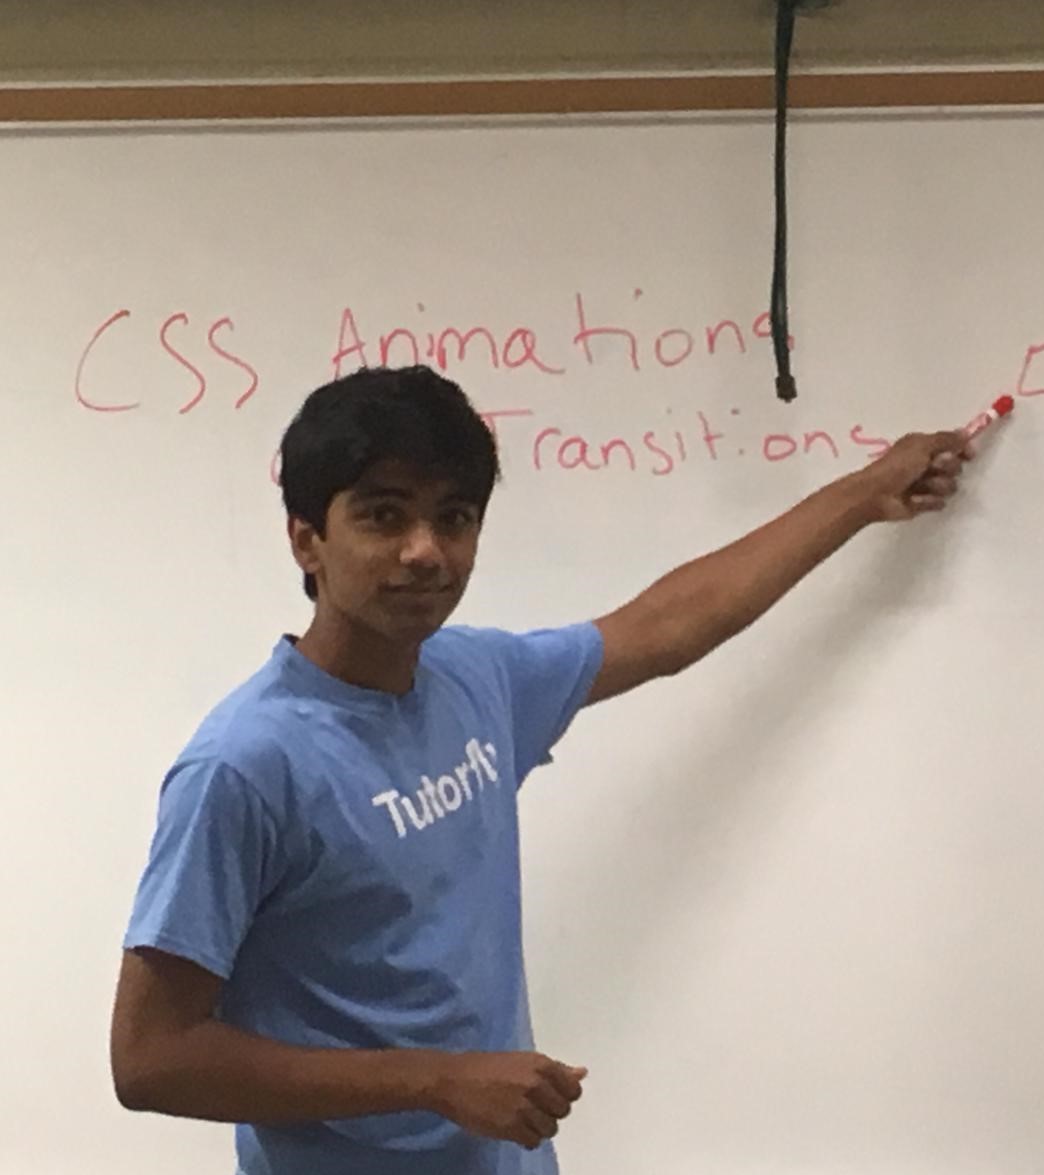 CSS Animations
Transitions
Tutorfly